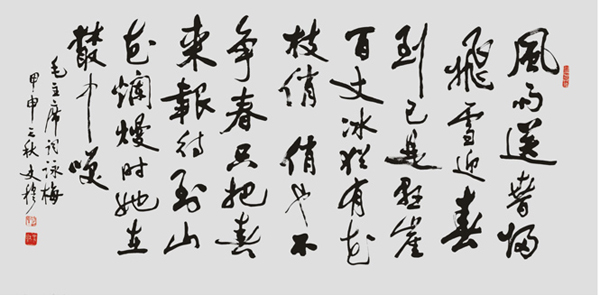 風雨送春歸
飛雪迎春
到已是懸崖
百丈冰猶有花
枝俏俏也不
爭春只把春
來報待到山
花爛熳時她在
叢中咲
毛主席詞詠梅
甲申之秋文